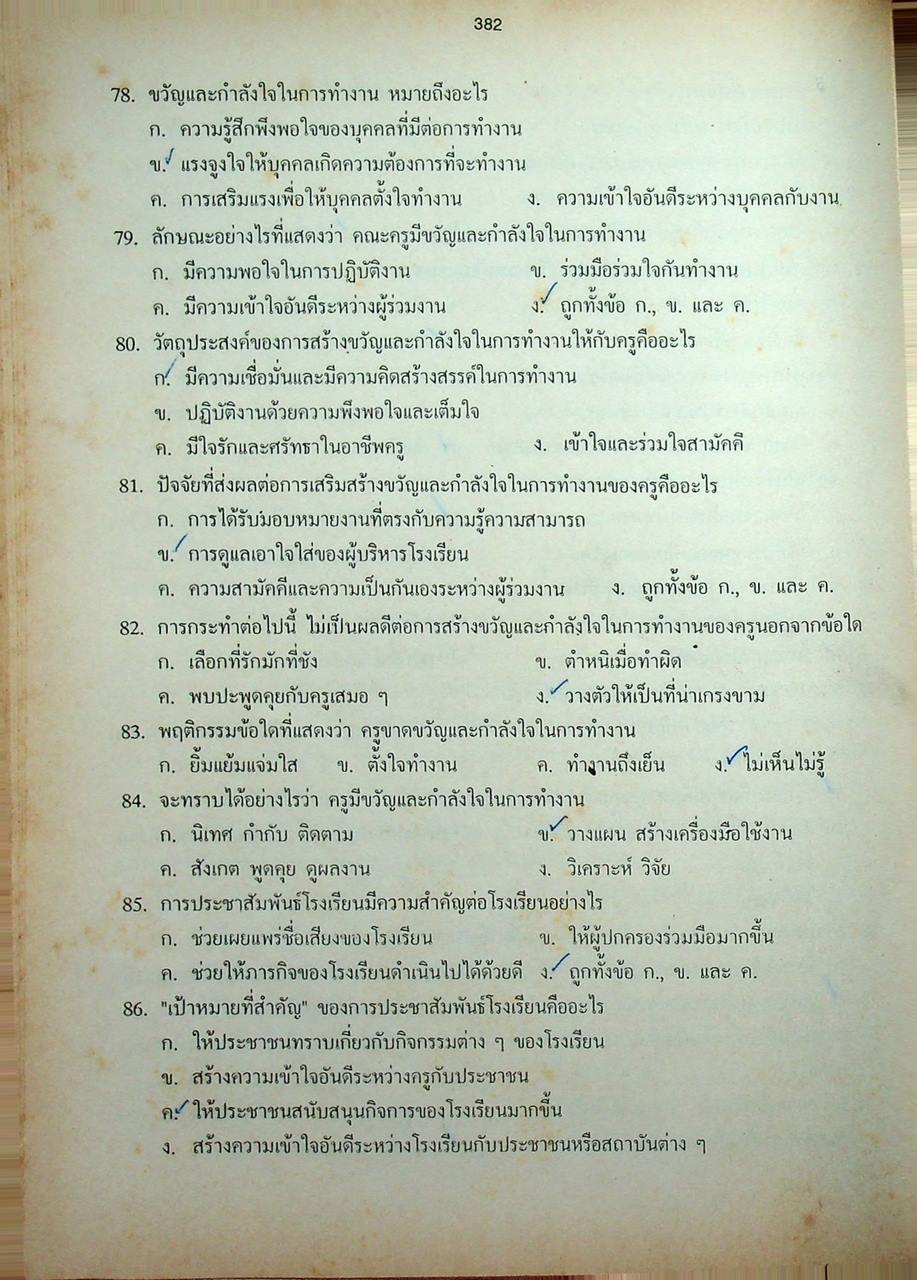 382
78. ขวัญและกำลังใจในการทำงาน หมายถึงอะไร
ก. ความรู้สึกพึงพอใจของบุคคลที่มีต่อการทำงาน
ข. แรงจูงใจให้บุคคลเกิดความต้องการที่จะทำงาน
ค. การเสริมแรงเพื่อให้บุคคลตั้งใจทำงาน ง. ความเข้าใจอันดีระหว่างบุคคลกับงาน
79. ลักษณะอย่างไรที่แสดงว่า คณะครูมีขวัญและกำลังใจในการทำงาน
ก. มีความพอใจในการปฏิบัติงาน ข. ร่วมมือร่วมใจกันทำงาน
ค. มีความเข้าใจอันดีระหว่างผู้ร่วมงาน ง. ถูกทั้งข้อ ก., ข. และ ค.
80. วัตถุประสงค์ของการสร้างขวัญและกำลังใจในการทำงานให้กับครูคืออะไร
ก. มีความเชื่อมั่นและมีความคิดสร้างสรรค์ในการทำงาน
ข. ปฏิบัติงานด้วยความพึงพอใจและเต็มใจ
ค. มีใจรักและศรัทธาในอาชีพครู ง. เข้าใจและร่วมใจสามัคคี
81. ปัจจัยที่ส่งผลต่อการเสริมสร้างขวัญและกำลังใจในการทำงานของครูคืออะไร
ก. การได้รับมอบหมายงานที่ตรงกับความรู้ความสามารถ
ข. การดูแลเอาใจใส่ของผู้บริหารโรงเรียน
ค. ความสามัคคีและความเป็นกันเองระหว่างผู้ร่วมงาน ง. ถูกทั้งข้อ ก., ข. และ ค.
82. การกระทำต่อไปนี้ ไม่เป็นผลดีต่อการสร้างขวัญและกำลังใจในการทำงานของครูนอกจากข้อใด
ก. เลือกที่รักมักที่ชัง ข. ตำหนิเมื่อทำผิด
ค. พบปะพูดคุยกับครูเสมอ ๆ ง. วางตัวให้เป็นที่น่าเกรงขาม
83. พฤติกรรมข้อใดที่แสดงว่า ครูขาดขวัญและกำลังใจในการทำงาน
ก. ยิ้มแย้มแจ่มใส ข. ตั้งใจทำงาน ค. ทำงานถึงเย็น ง. ไม่เห็นไม่รู้
84. จะทราบได้อย่างไรว่า ครูมีขวัญและกำลังใจในการทำงาน
ก. นิเทศ กำกับ ติดตาม ข. วางแผน สร้างเครื่องมือใช้งาน
ค. สังเกต พูดคุย ดูผลงาน ง. วิเคราะห์ วิจัย
85. การประชาสัมพันธ์โรงเรียนมีความสำคัญต่อโรงเรียนอย่างไร
ก. ช่วยเผยแพร่ชื่อเสียงของโรงเรียน ข. ให้ผู้ปกครองร่วมมือมากขึ้น
ค. ช่วยให้ภารกิจของโรงเรียนดำเนินไปได้ด้วยดี ง. ถูกทั้งข้อ ก., ข. และ ค.
86. "เป้าหมายที่สำคัญ" ของการประชาสัมพันธ์โรงเรียนคืออะไร
ก. ให้ประชาชนทราบเกี่ยวกับกิจกรรมต่าง ๆ ของโรงเรียน
ข. สร้างความเข้าใจอันดีระหว่างครูกับประชาชน
ค. ให้ประชาชนสนับสนุนกิจการของโรงเรียนมากขึ้น
ง. สร้างความเข้าใจอันดีระหว่างโรงเรียนกับประชาชนหรือสถาบันต่าง ๆ